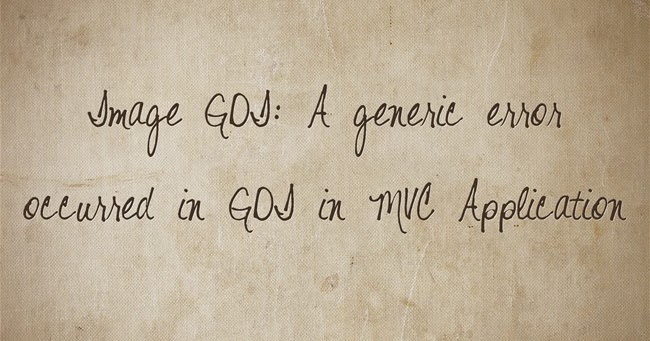 Image GDI: A generic error
occurred in GDI in MVC Application